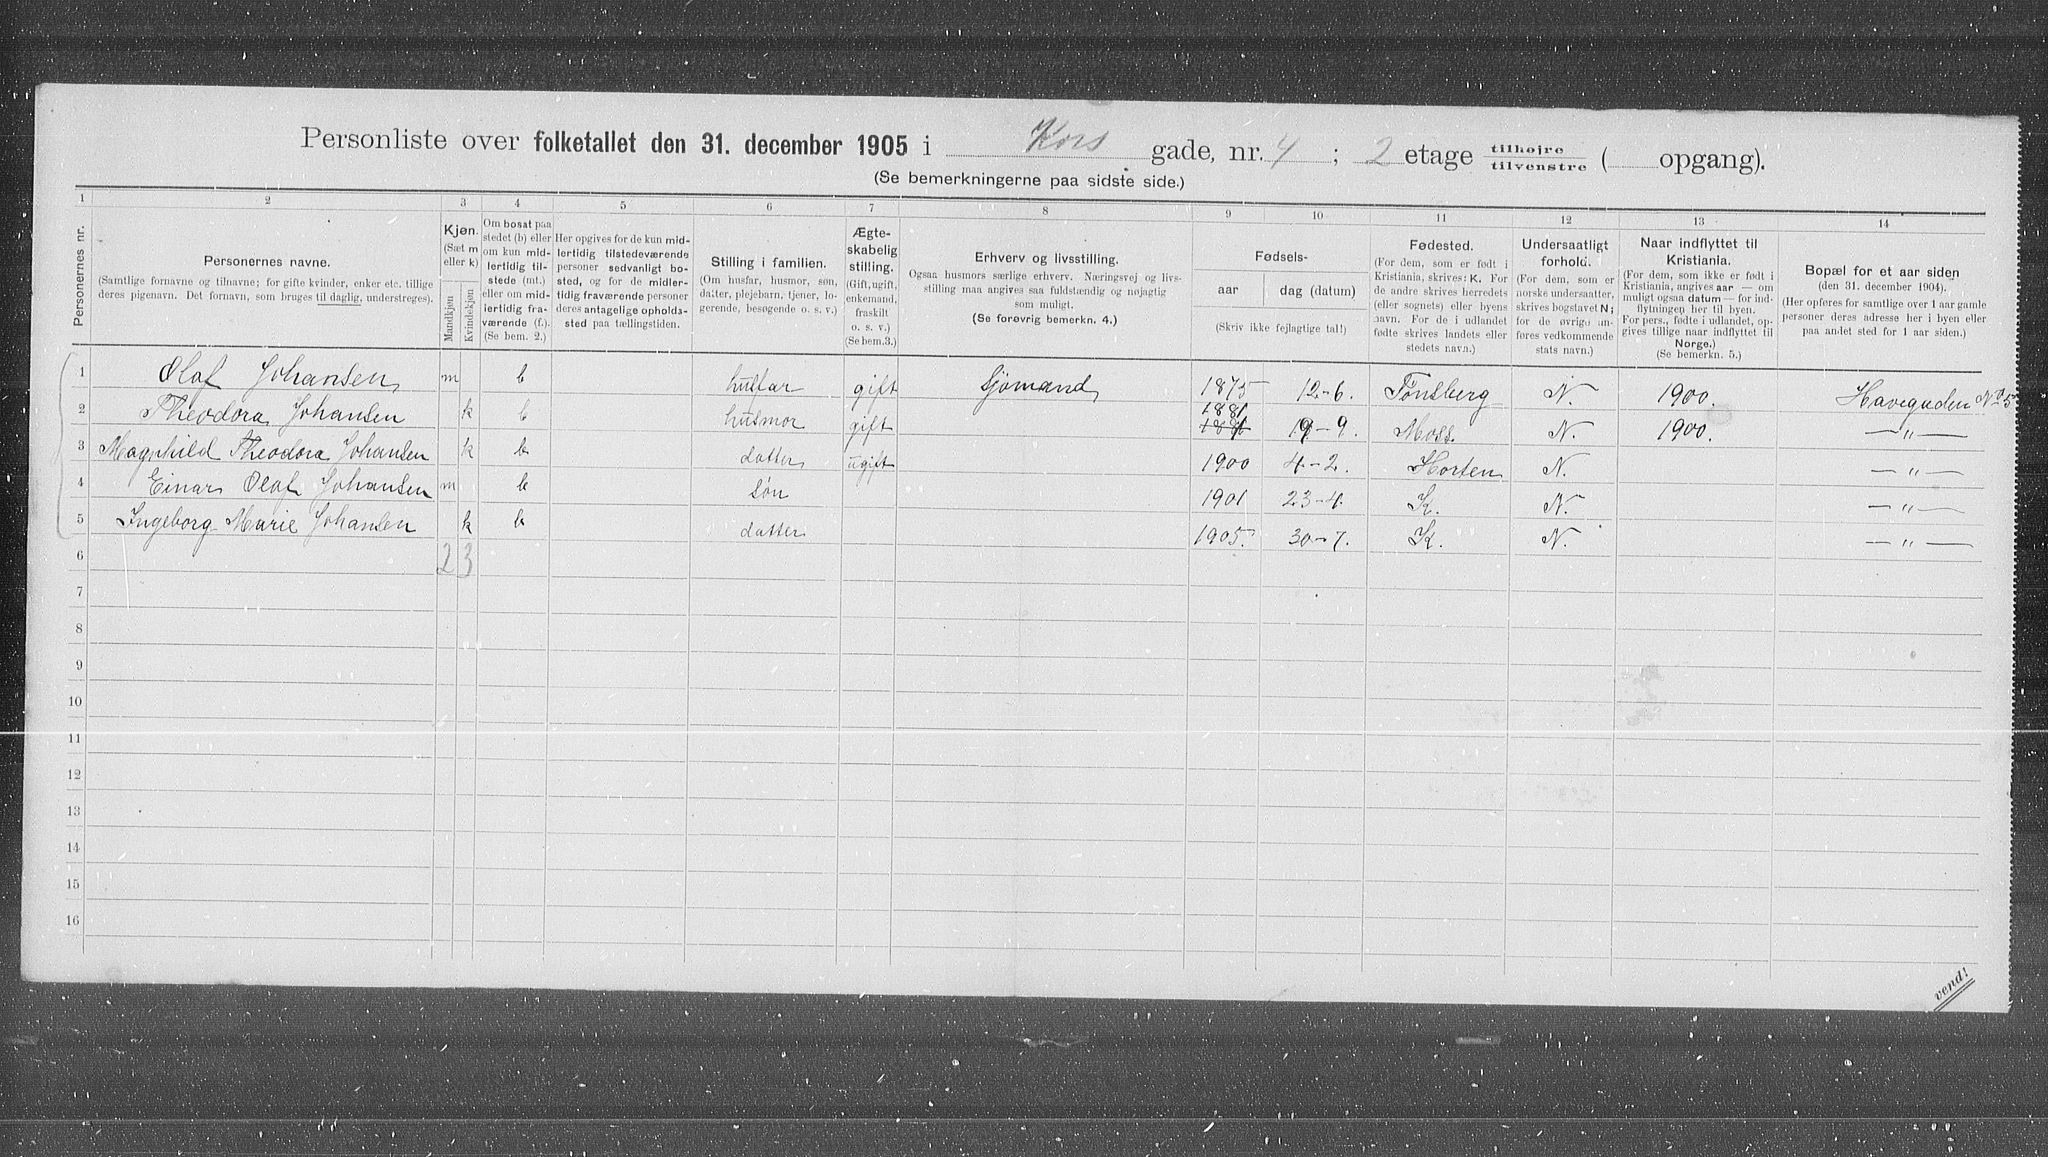 Personliste over folketallet den 31. december 1905 i Kors gade, nr. 4 ; 2 etage tilhøjre tilvenstre ( opgang).
(Se bemerkningerne paa sidste side.)
1 2 3 4 5 6 7 8 9 10 11 12 13 14
Personernes nr.
Personernes navne.
(Samtlige fornavne og tilnavne; for gifte kvinder, enker etc. tillige
deres pigenavn. Det fornavn, som bruges til daglig, understreges).
Kjøn.
(Sæt m
eller k)
Mandkjøn
Kvindekjøn
Om bosat paa
stedet (b) eller
om kun mid-
lertidig til-
stede (mt.)
eller om mid-
lertidig fra-
værende (f.).
(Se bem. 2.)
Her opgives for de kun mid-
lertidig tilstedeværende
personer sedvanligt bo-
sted, og for de midler-
tidig fraværende personer
deres antagelige opholds-
sted paa tællingstiden.
Stilling i familien.
(Om husfar, husmor, søn,
datter, plejebarn, tjener, lo-
gerende, besøgende o. s. v.)
Ægte-
skabelig
stilling.
(Gift, ugift,
enkemand,
fraskilt
o. s. v.)
(Se bem.3.)
Erhverv og livsstilling.
Ogsaa husmors særlige erhverv. Næringsvej og livs-
stilling maa angives saa fuldstændig og nøjagtig
som muligt.
(Se forøvrig bemerkn. 4.)
Fødsels-
aar
dag (datum)
(Skriv ikke fejlagtige tal!)
Fødested.
(For dem, som er født i
Kristiania, skrives: K. For
de andre skrives herredets
(eller sognets) eller byens
navn. For de i udlandet
fødte skrives landets eller
stedets navn.)
Undersaatligt
forhold.
(For dem, som er
norske undersaatter,
skrives bogstavet N;
for de øvrige an-
føres vedkommende
stats navn.)
Naar indflyttet til
Kristiania.
(For dem, som ikke er født i
Kristiania, angives aar — om
muligt ogsaa datum — for ind-
flytningen her til byen.
For pers., fødte i udlandet, op-
gives tillige naar indflyttet til
Norge.)
(Se bemerkn. 5.)
Bopæl for et aar siden
(den 31. december 1904).
(Her opføres for samtlige over 1 aar gamle
personer deres adresse her i byen eller
paa andet sted for 1 aar siden.)
1 Olaf Johansen m b husfar gift Sjømand 1875 12-6. Tønsberg N. 1900. Havegaden No 5
2 Theodora Johansen k b husmor gift 1881 19-9. Moss. N. 1900. —„—
3 Magnhild Theodora Johansen k b datter ugift 1900 4-2. Horten N. —„—
4 Einar Olaf Johansen m b søn 1901 23-4. K. N. —„—
5 Ingeborg Marie Johansen k b datter 1905. 30-7. K. N. —„—
6 2 3
7
8
9
10
11
12
13
14
15
16
vend!